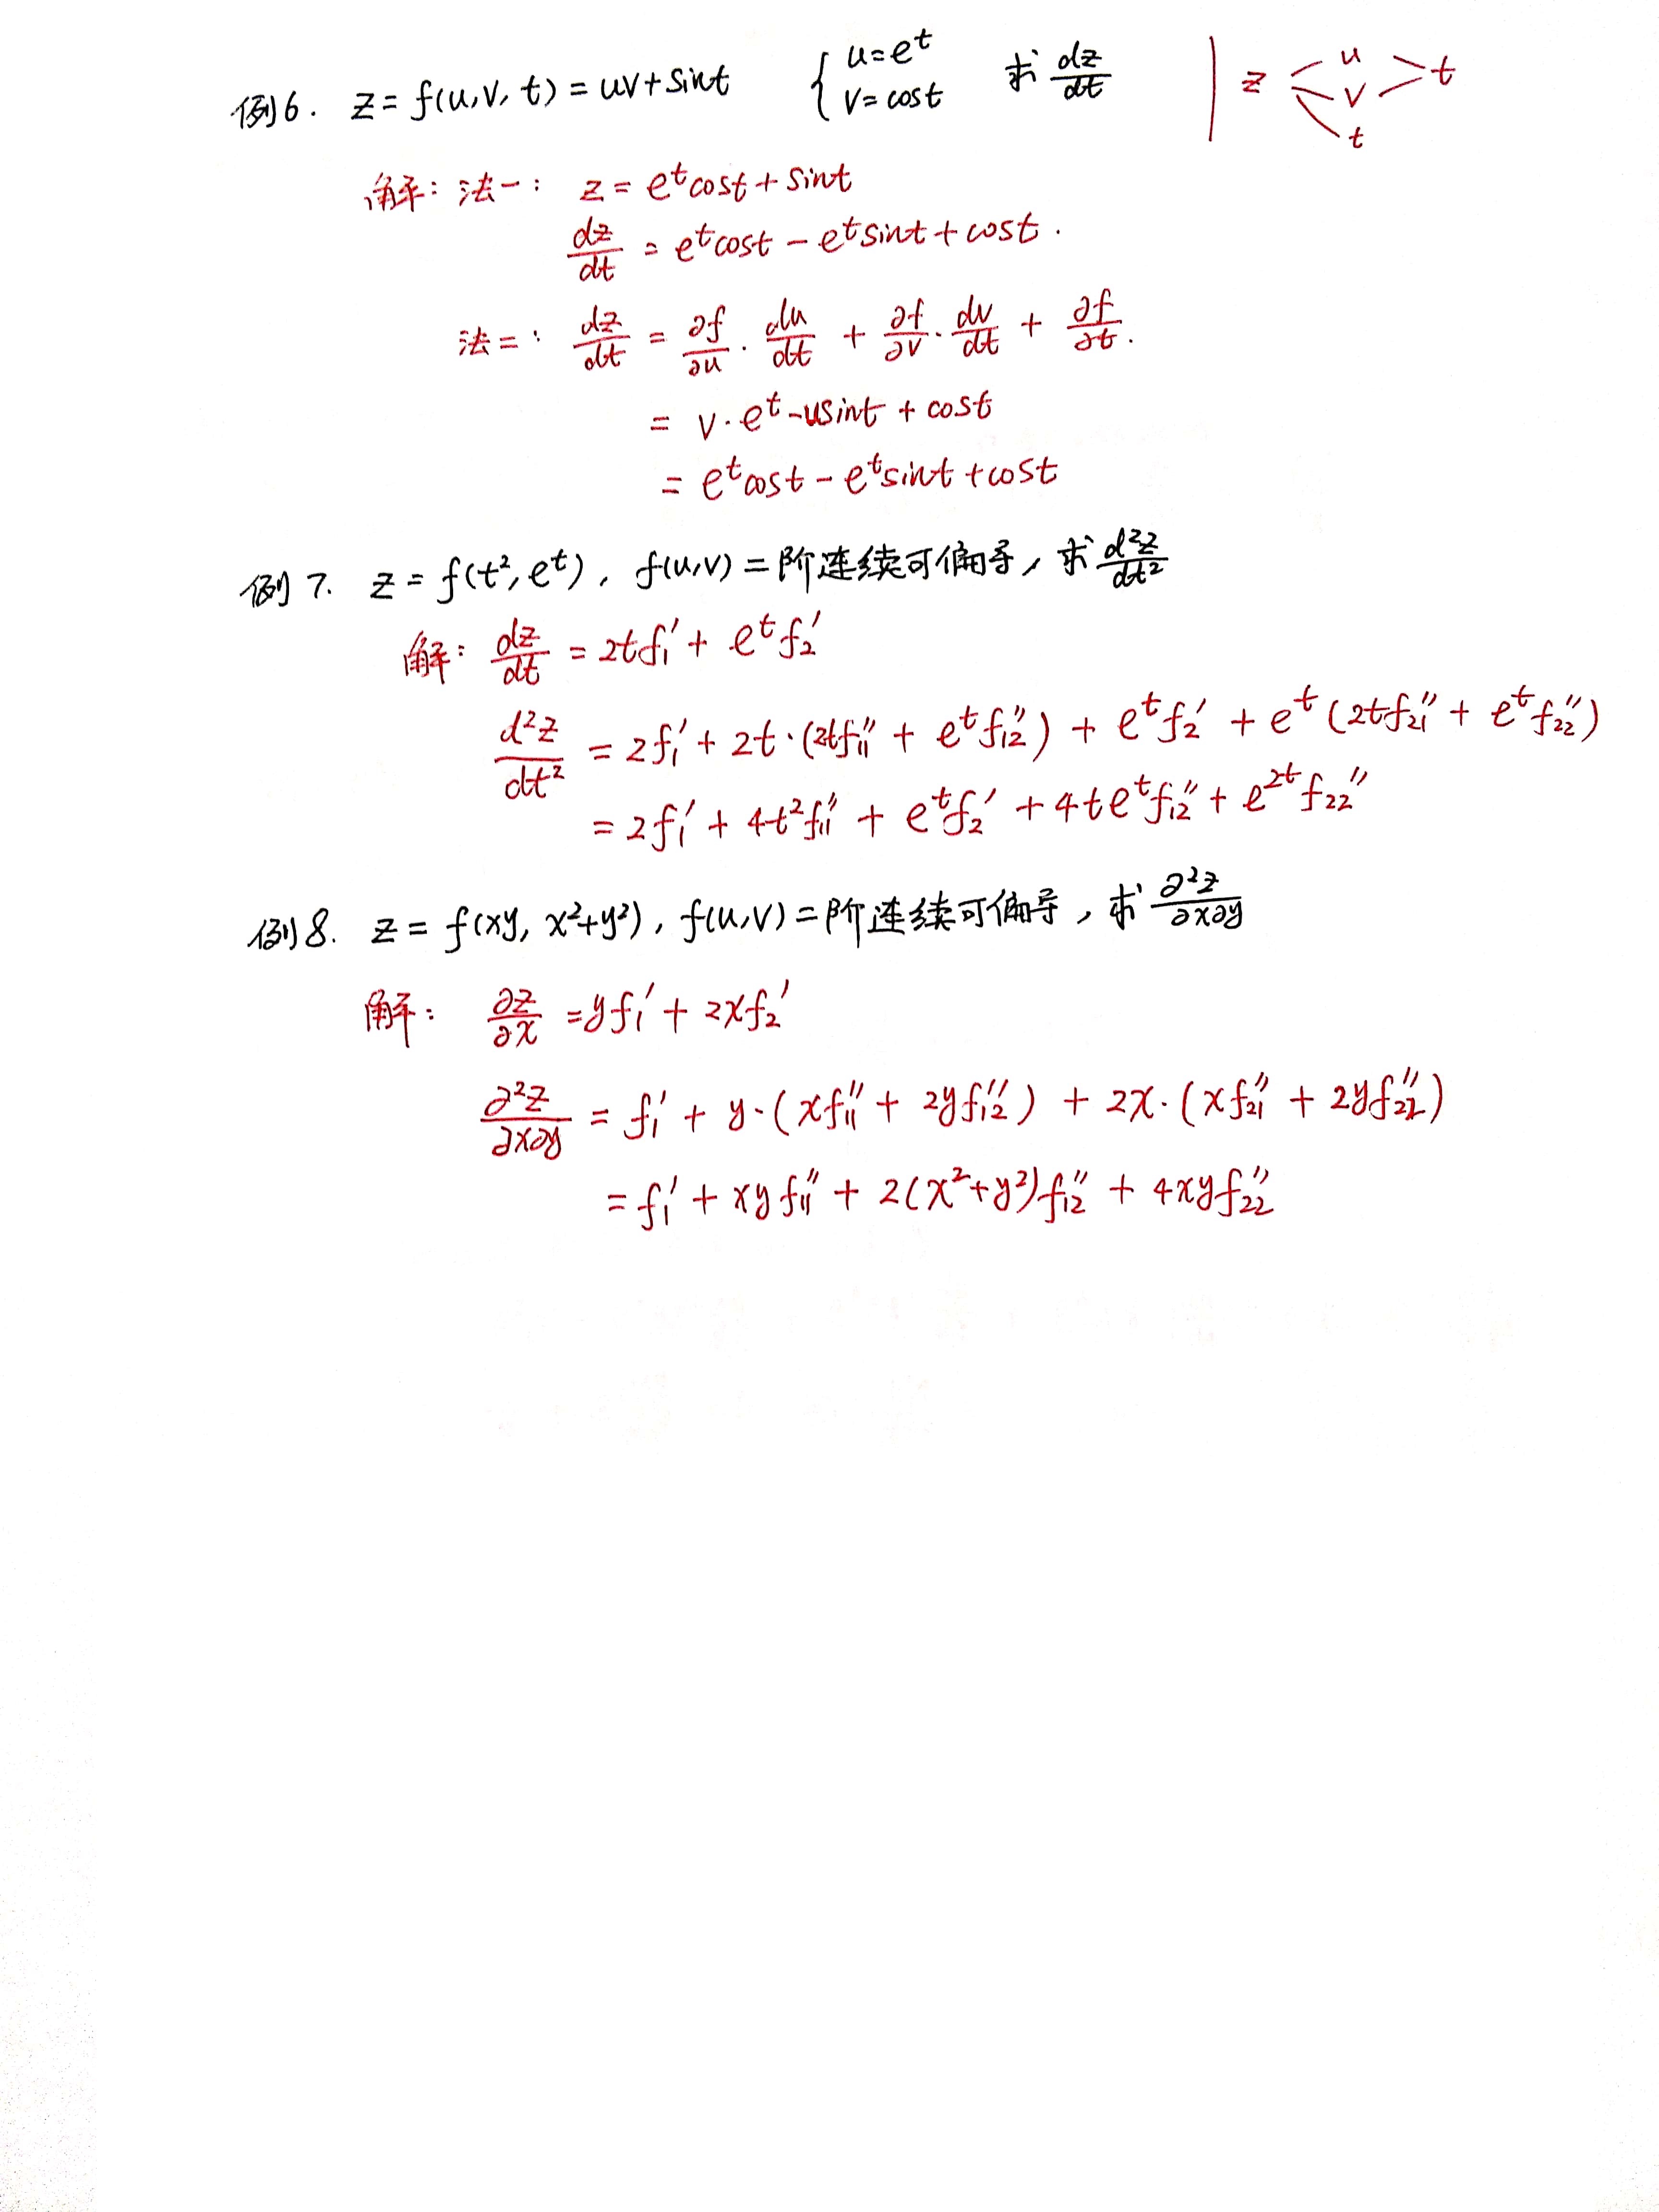 例6. z = f(u,v,t) = uv+sint { u=e^t v=cost 求 dz/dt | z u v t t
解：法一： z = e^t cost + sint
dz/dt = e^t cost - e^t sint + cost .
法二： dz/dt = ∂f/∂u · du/dt + ∂f/∂v · dv/dt + ∂f/∂t .
= v·e^t - usint + cost
= e^t cost - e^t sint + cost
例7. z = f(t², e^t) , f(u,v)二阶连续可偏导，求 d²z/dt²
解： dz/dt = 2tf₁′ + e^t f₂′
d²z/dt² = 2f₁′ + 2t·(2tf₁₁″ + e^t f₁₂″) + e^t f₂′ + e^t (2tf₂₁″ + e^t f₂₂″)
= 2f₁′ + 4t²f₁₁″ + e^t f₂′ + 4te^t f₁₂″ + e^{2t} f₂₂″
例8. z = f(xy, x²+y²) , f(u,v)二阶连续可偏导，求 ∂²z/∂x∂y
解： ∂z/∂x = yf₁′ + 2xf₂′
∂²z/∂x∂y = f₁′ + y·(xf₁₁″ + 2yf₁₂″) + 2x·(xf₂₁″ + 2yf₂₂″)
= f₁′ + xyf₁₁″ + 2(x²+y²)f₁₂″ + 4xyf₂₂″